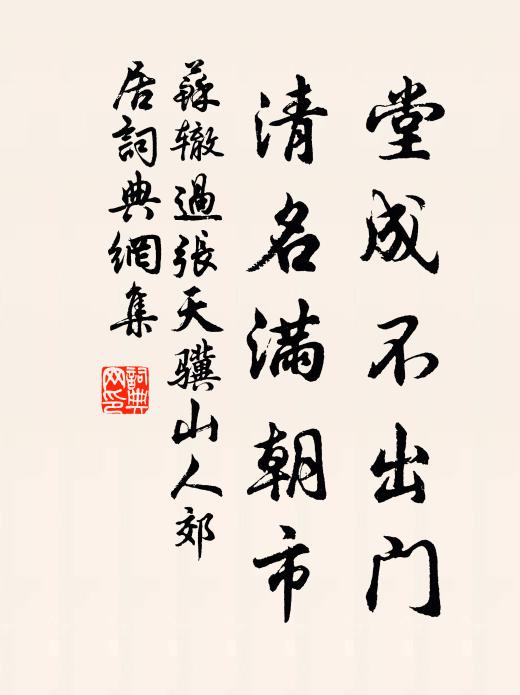 堂成不出门
清名满朝市
蘇辙過張天骥山人郊
居詞典網集
詞典网印